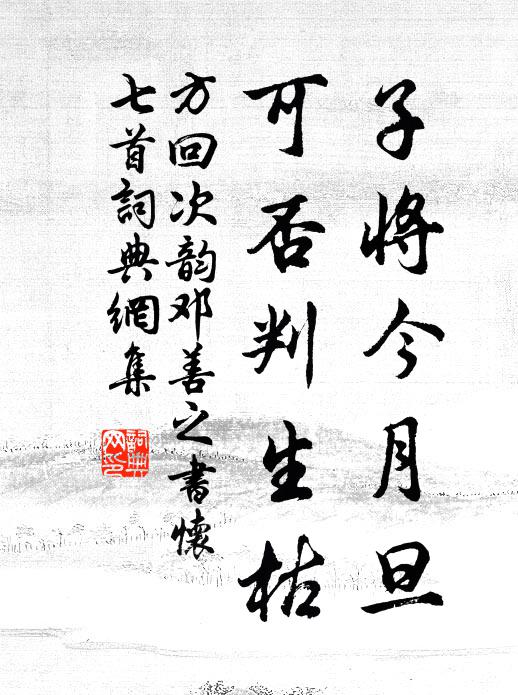 子将今月旦
可否判生枯
方回次韵邓善之书怀
七首詞典網集
詞典
网印